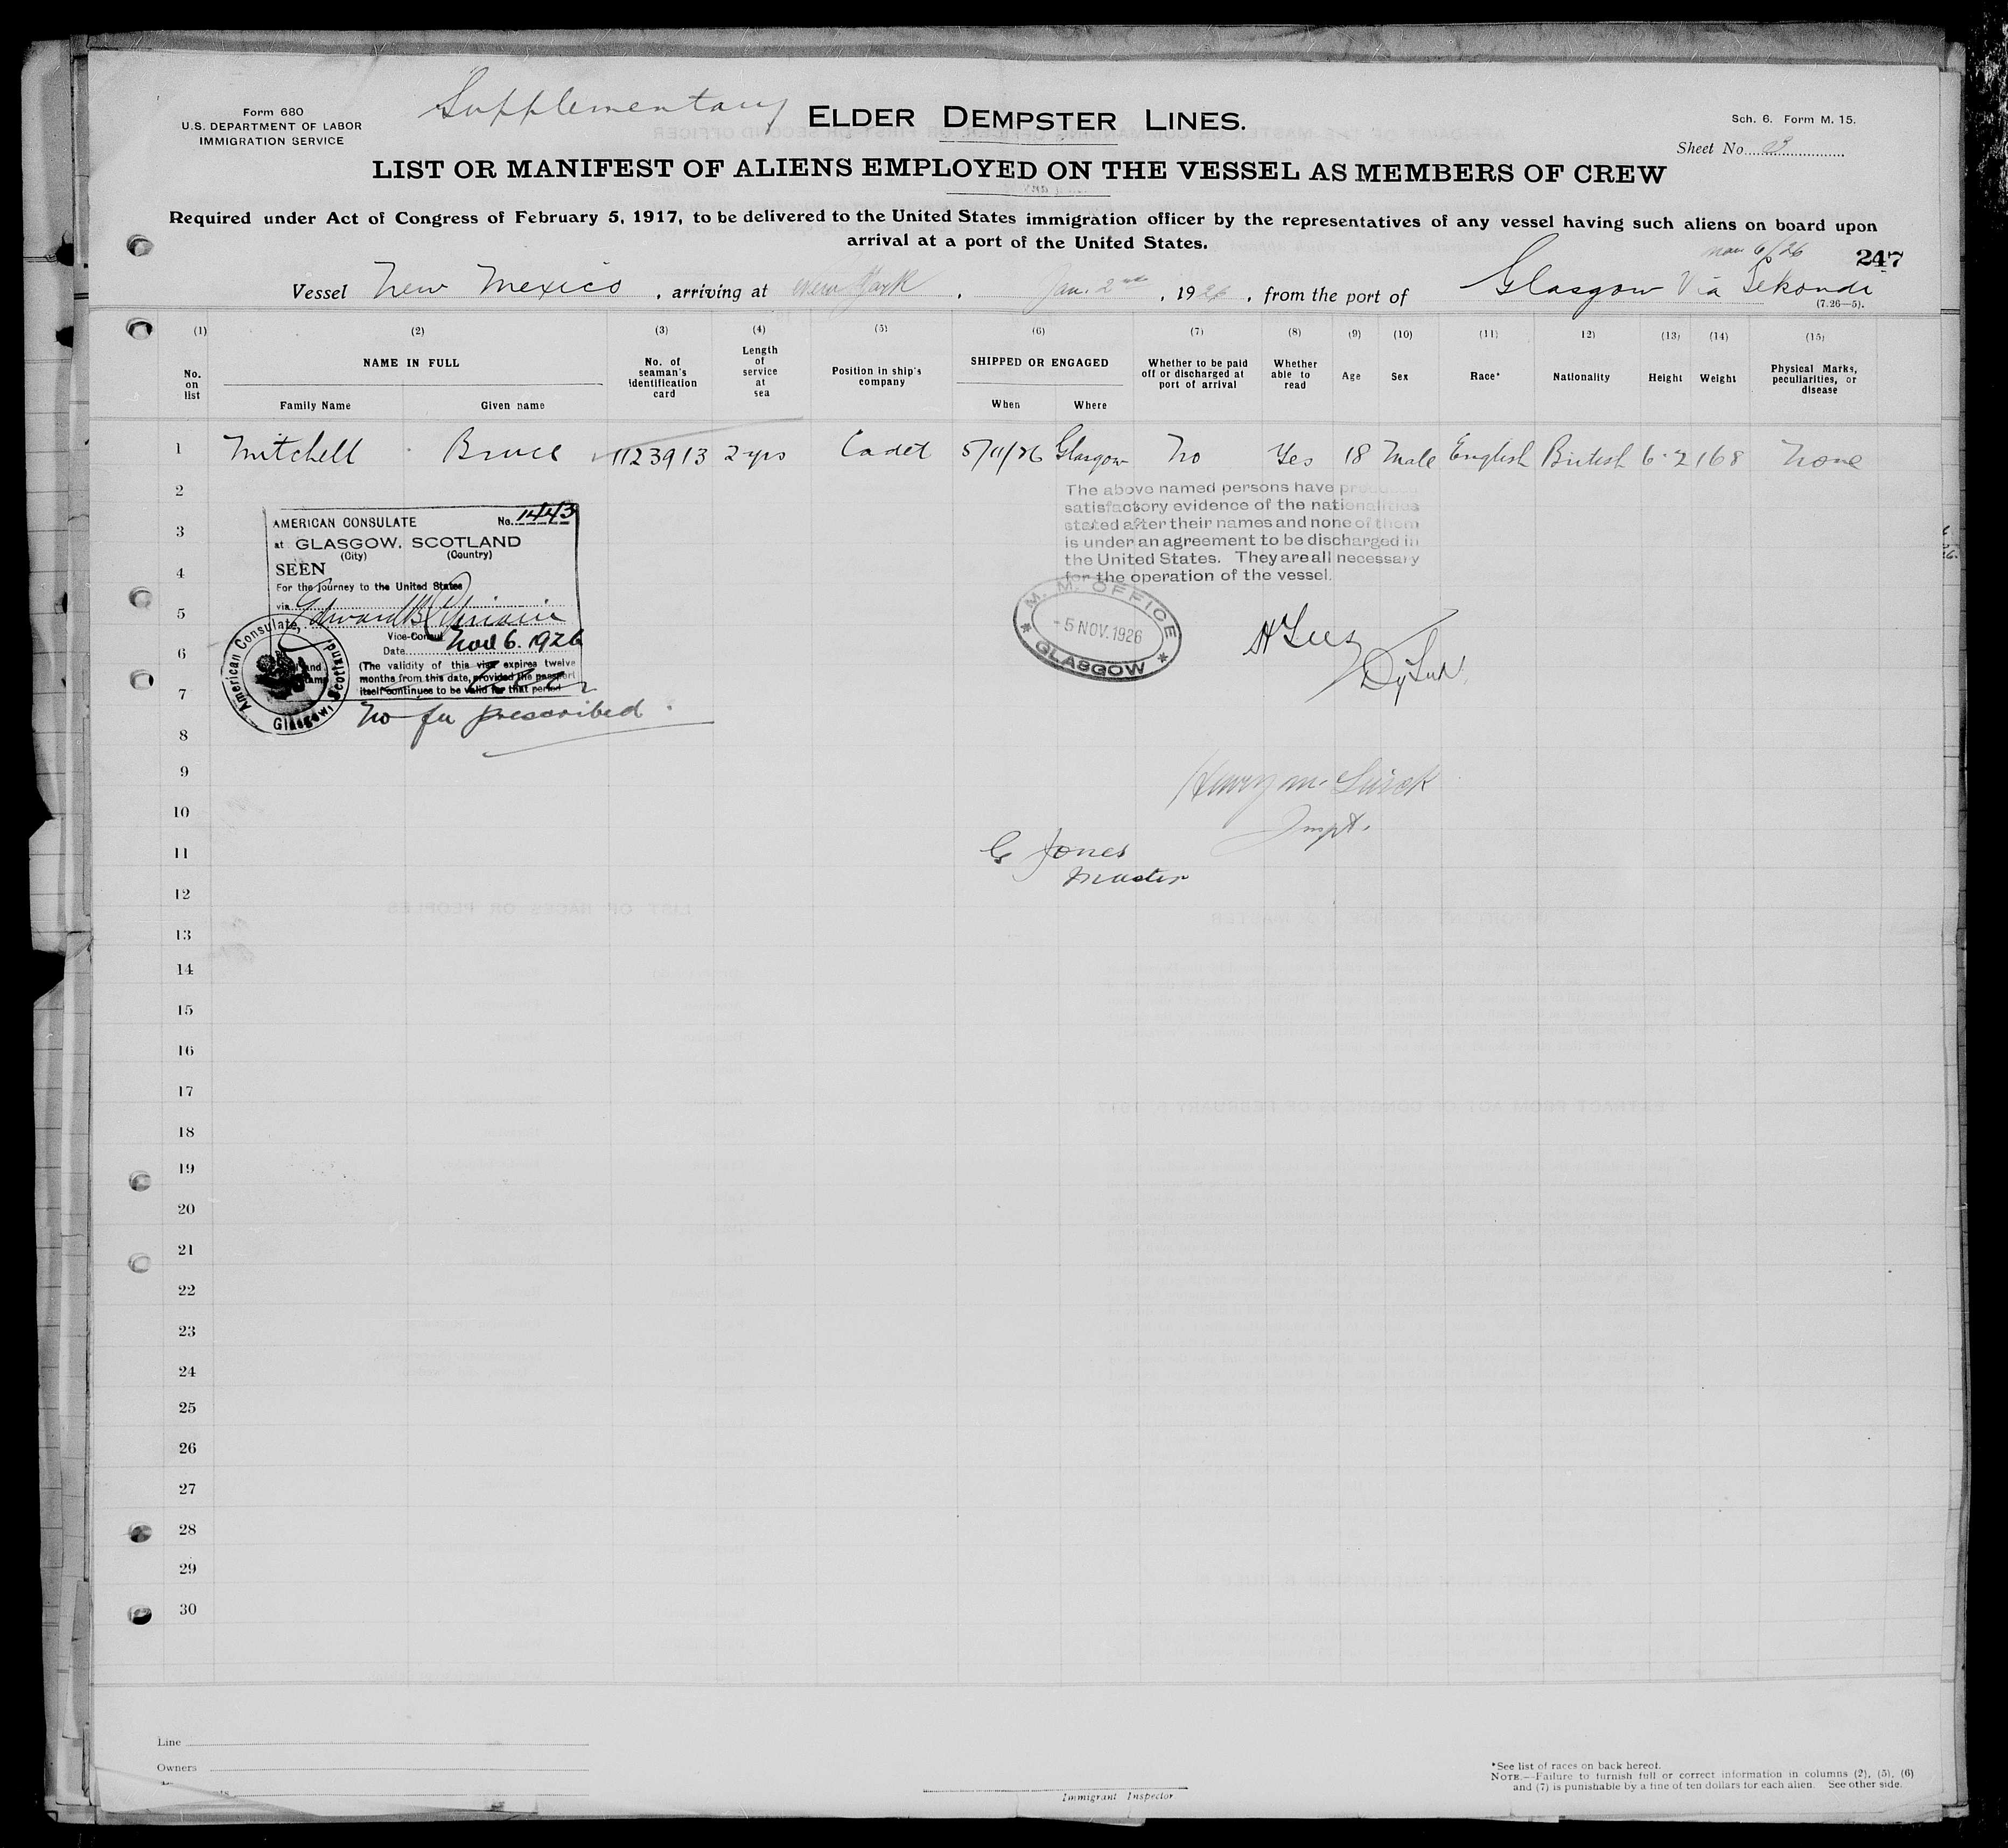 Supplementary
Form 680
U.S. DEPARTMENT OF LABOR
IMMIGRATION SERVICE
ELDER DEMPSTER LINES.
Sch. 6. Form M. 15.
Sheet No. 3
LIST OR MANIFEST OF ALIENS EMPLOYED ON THE VESSEL AS MEMBERS OF CREW
Required under Act of Congress of February 5, 1917, to be delivered to the United States immigration officer by the representatives of any vessel having such aliens on board upon
arrival at a port of the United States.
Nov 6/26
247
Vessel New Mexico, arriving at New York, Jan. 2nd, 1926, from the port of Glasgow Via Sekondi
(7.26—5).
(1) (2) (3) (4) (5) (6) (7) (8) (9) (10) (11) 12) (13) (14) (15)
No. on list
NAME IN FULL
Family Name Given name
No. of seaman's identification card
Length of service at sea
Position in ship's company
SHIPPED OR ENGAGED
When Where
Whether to be paid off or discharged at port of arrival
Whether able to read
Age
Sex
Race*
Nationality
Height
Weight
Physical Marks, peculiarities, or disease
1 Mitchell Bruce 1123913 2 yrs Cadet 5/11/26 Glasgow No Yes 18 Male English British 6-2 168 None
2
3
4
5
6
7
8
9
10
11
12
13
14
15
16
17
18
19
20
21
22
23
24
25
26
27
28
29
30
The above named persons have
satisfactory evidence of the nationalities
stated after their names and none of them
is under an agreement to be discharged in
the United States. They are all necessary
for the operation of the vessel.
M. M. OFFICE
- 5 NOV. 1926
* GLASGOW *
AMERICAN CONSULATE No. 1443
at GLASGOW, SCOTLAND
(City) (Country)
SEEN
For the journey to the United States
via
Vice-Consul
Date Nov 6. 1926
(The validity of this visa expires twelve
months from this date, provided the passport
itself continues to be valid for that period
American Consulate, Glasgow, Scotland
No fee prescribed
Inspt.
G Jones
Master
Line
Owners
Immigrant Inspector
*See list of races on back hereof.
NOTE.—Failure to furnish full or correct information in columns (2), (5), (6)
and (7) is punishable by a fine of ten dollars for each alien. See other side.